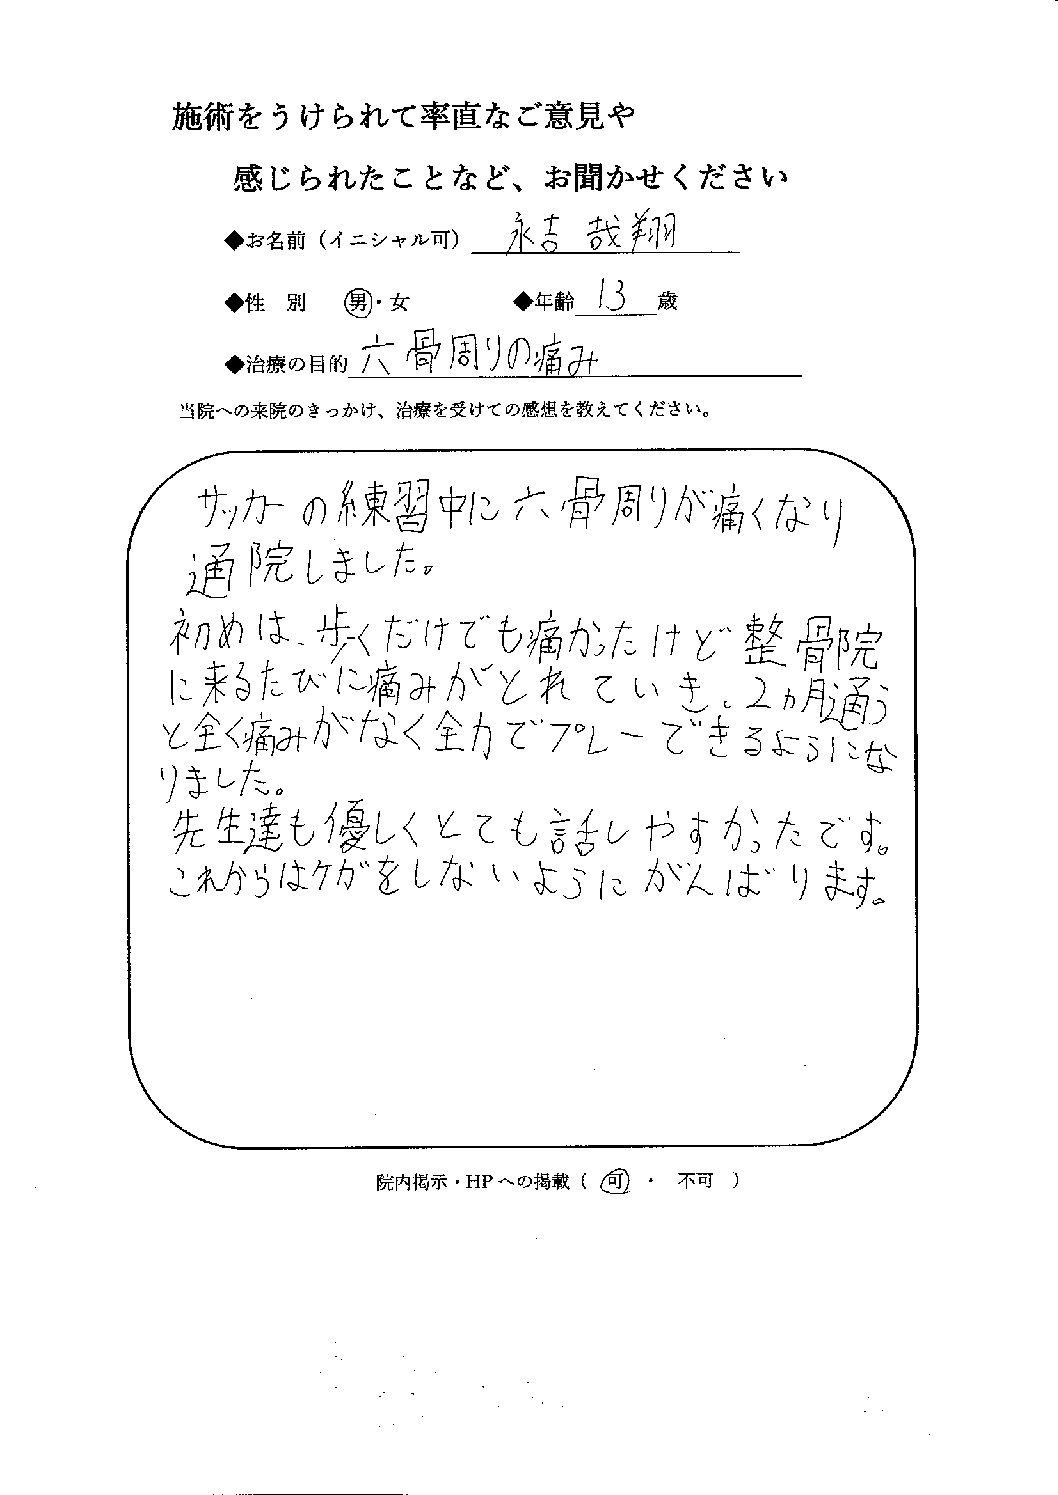 施術をうけられて率直なご意見や
感じられたことなど、お聞かせください
◆お名前（イニシャル可） 永吉 哉翔
◆性 別 男・女 ◆年齢 13 歳
◆治療の目的 六骨周りの痛み
当院への来院のきっかけ、治療を受けての感想を教えてください。
サッカーの練習中に六骨周りが痛くなり
通院しました。
初めは、歩くだけでも痛かったけど整骨院
に来るたびに痛みがとれていき、2ヵ月通う
と全く痛みがなく全力でプレーできるようにな
りました。
先生達も優しくとても話しやすかったです。
これからはケガをしないようにがんばります。
院内掲示・HPへの掲載（ 可 ・ 不可 ）